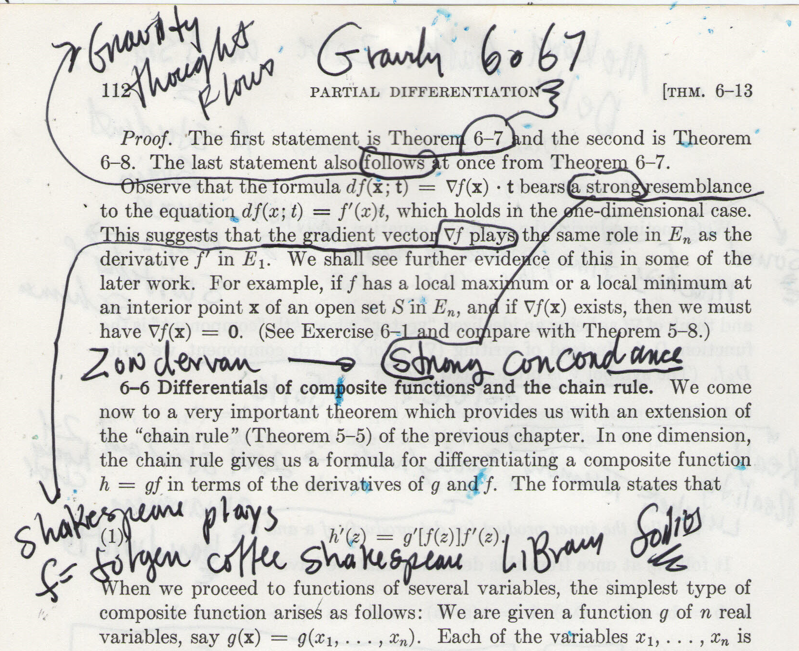 Gravity Gravly 6 o 67
thought
flows
112 PARTIAL DIFFERENTIATION [THM. 6–13
Proof. The first statement is Theorem 6–7 and the second is Theorem
6–8. The last statement also follows at once from Theorem 6–7.
Observe that the formula df(x; t) = ∇f(x) · t bears a strong resemblance
to the equation df(x; t) = f′(x)t, which holds in the one-dimensional case.
This suggests that the gradient vector ∇f plays the same role in Eₙ as the
derivative f′ in E₁. We shall see further evidence of this in some of the
later work. For example, if f has a local maximum or a local minimum at
an interior point x of an open set S in Eₙ, and if ∇f(x) exists, then we must
have ∇f(x) = 0. (See Exercise 6–1 and compare with Theorem 5–8.)
Zondervan → strong concordance
6–6 Differentials of composite functions and the chain rule. We come
now to a very important theorem which provides us with an extension of
the “chain rule” (Theorem 5–5) of the previous chapter. In one dimension,
the chain rule gives us a formula for differentiating a composite function
h = gf in terms of the derivatives of g and f. The formula states that
Shakespeare plays
(1) h′(z) = g′[f(z)]f′(z).
f = folgen coffee Shakespeare Library folios
When we proceed to functions of several variables, the simplest type of
composite function arises as follows: We are given a function g of n real
variables, say g(x) = g(x₁, . . . , xₙ). Each of the variables x₁, . . . , xₙ is